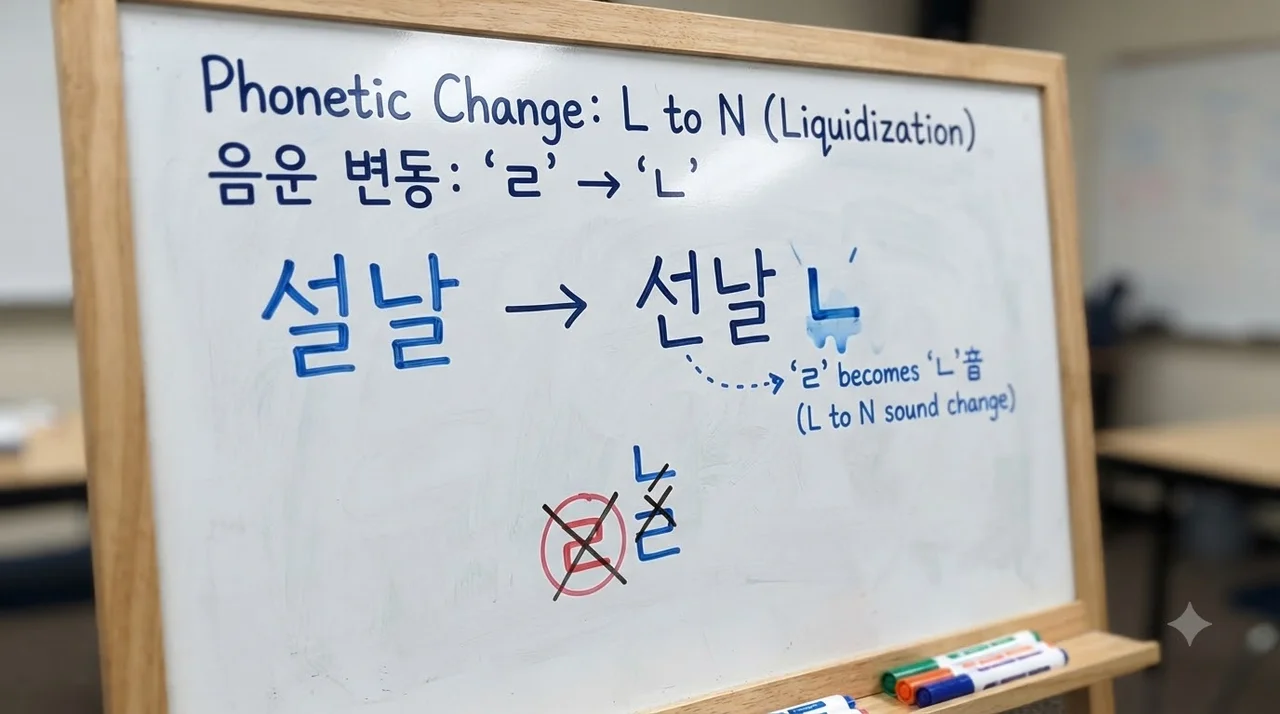 Phonetic Change: L to N (Liquidization)
음운 변동: ‘ㄹ’ → ‘ㄴ’
설날 → 선날 ㄴ
‘ㄹ’ becomes ‘ㄴ’音
(L to N sound change)
ㄴ
ㄹ ㄹ